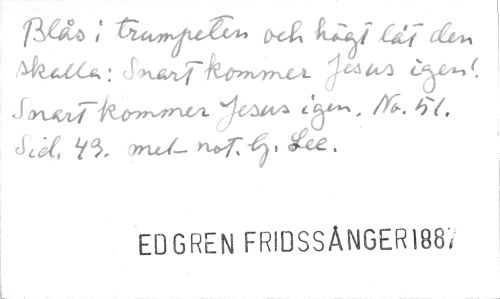 Blås i trumpeten och högt låt den
skalla: Snart kommer Jesus igen!
Snart kommer Jesus igen. No. 51.
Sid. 43. mel- not. G. Lee.
EDGREN FRIDSSÅNGER 1887